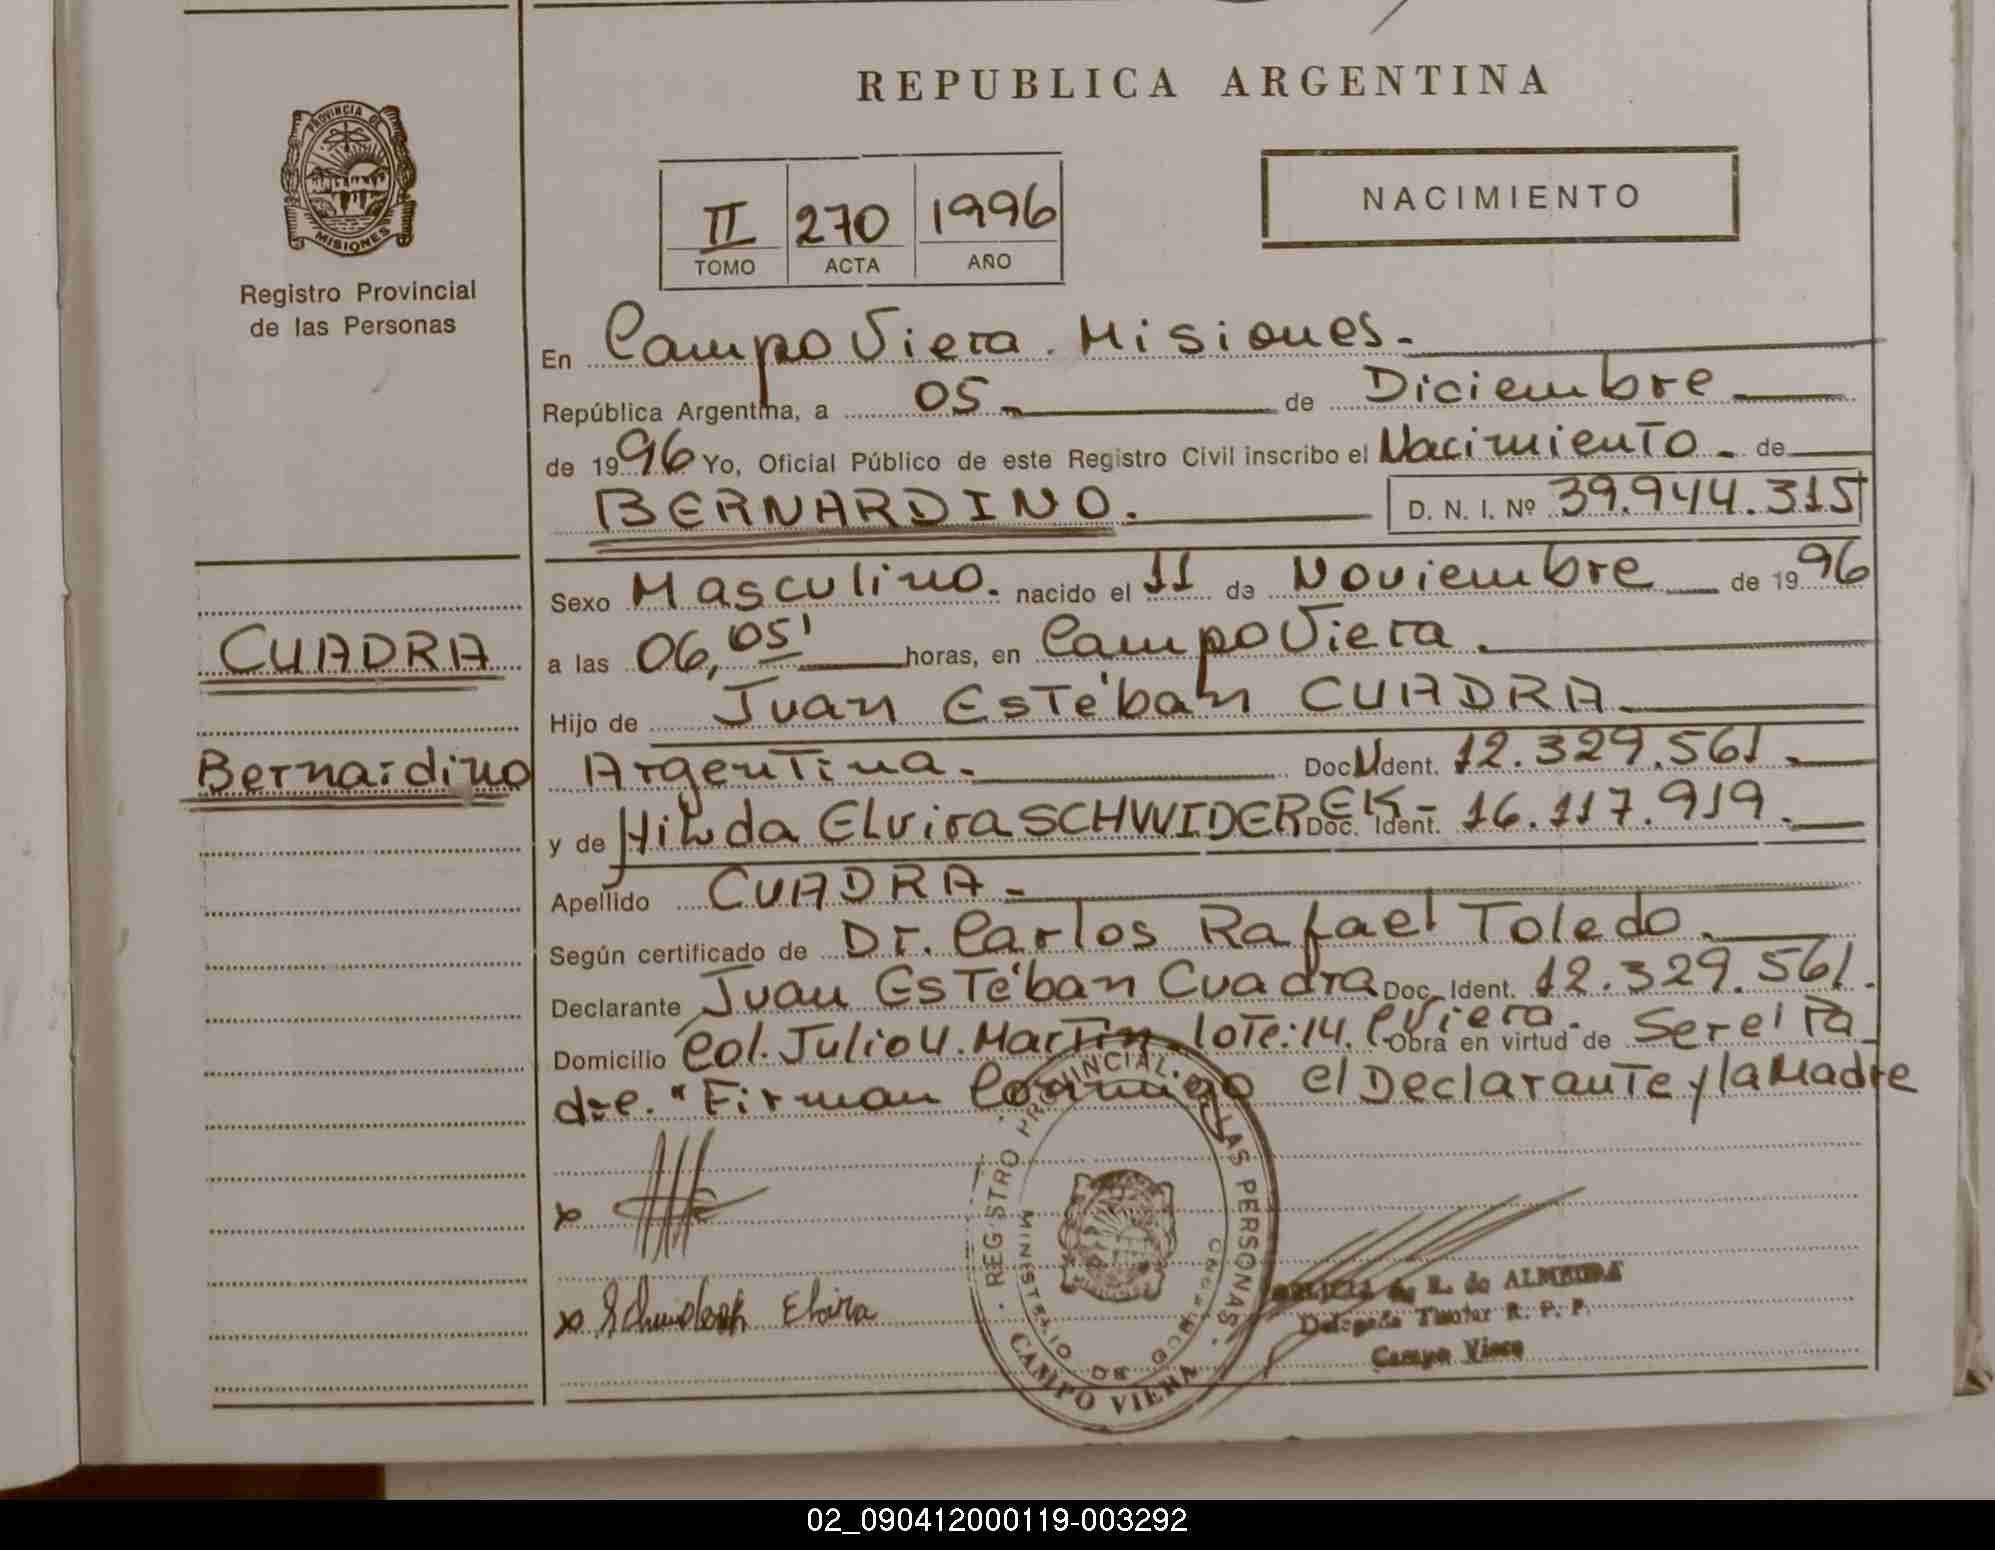 REPUBLICA ARGENTINA
PROVINCIA DE
MISIONES
Registro Provincial
de las Personas
II 270 1996
TOMO ACTA AÑO
NACIMIENTO
En Campo Viera. Misiones.-
República Argentina, a 05- de Diciembre
de 1996 Yo, Oficial Público de este Registro Civil inscribo el Nacimiento - de
BERNARDINO. D. N. I. Nº 39.944.315
Sexo Masculino. nacido el 11 de Noviembre de 1996
CUADRA
a las 06,05' horas, en Campo Viera.
Hijo de Juan Estéban CUADRA
Bernardino
Argentina. Doc. Ident. 12.329.561.
y de Hilda Elvira SCHWIDEREK- Doc. Ident. 16.117.919.
Apellido CUADRA-
Según certificado de Dr. Carlos Rafael Toledo.
Declarante Juan Estéban Cuadra Doc. Ident. 12.329.561.
Domicilio Col. Julio U. Martin. lote: 14. C Viera. Obra en virtud de Ser el Pa
dre. "Firman Conmigo el Declarante y la Madre
x
x Elvira
REGISTRO PROVINCIAL LAS PERSONAS
MINISTERIO DE
CAMPO VIERA
R. de ALMEIDA
Delegada Titular R. P. P.
Campo Viera
02_090412000119-003292